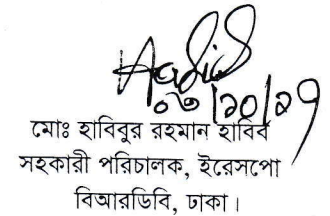 ০৩/১০/২৭
মোঃ হাবিবুর রহমান হাবিব
সহকারী পরিচালক, ইরেসপো
বিআরডিবি, ঢাকা।